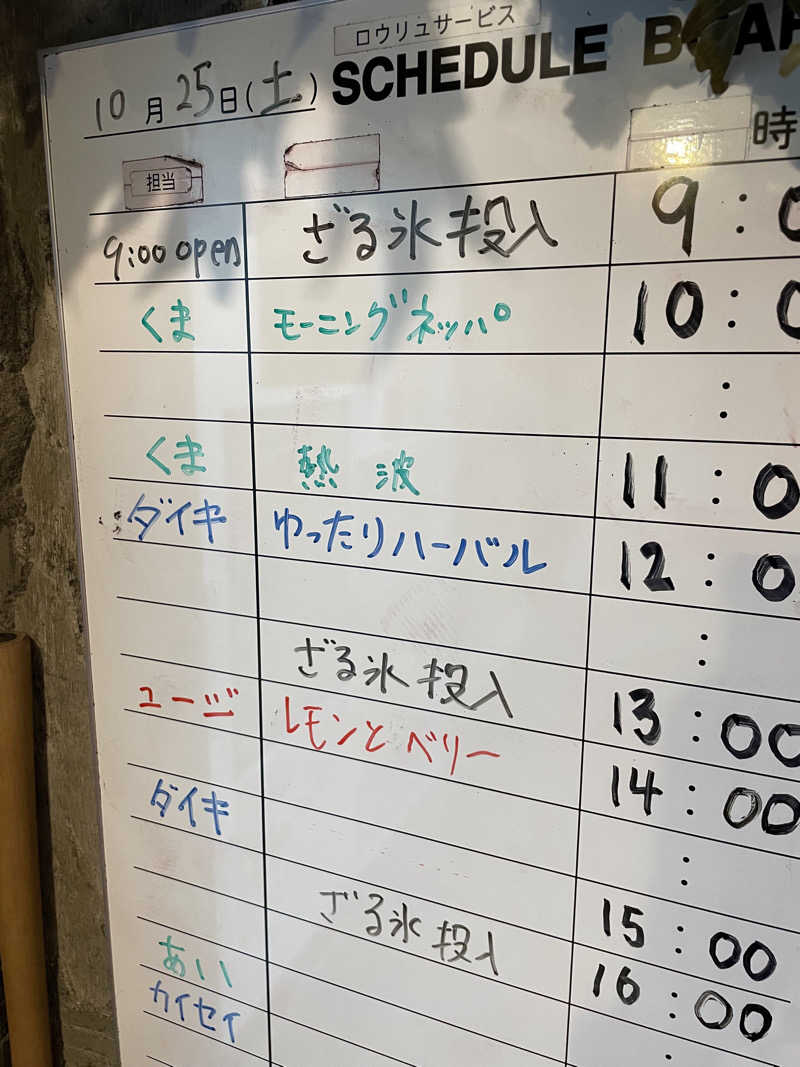 ロウリュサービス
SCHEDULE
10月25日(土)
担当
時
9:00 open ざる氷投入 9:0
くま モーニングネッパ 10:0
:
くま 熱 波 11:0
ダイキ ゆったりハーバル 12:0
:
ざる氷投入
ユージ レモンとベリー 13:00
ダイキ 14:00
:
ざる氷投入 15:00
あい 16:00
カイセイ :